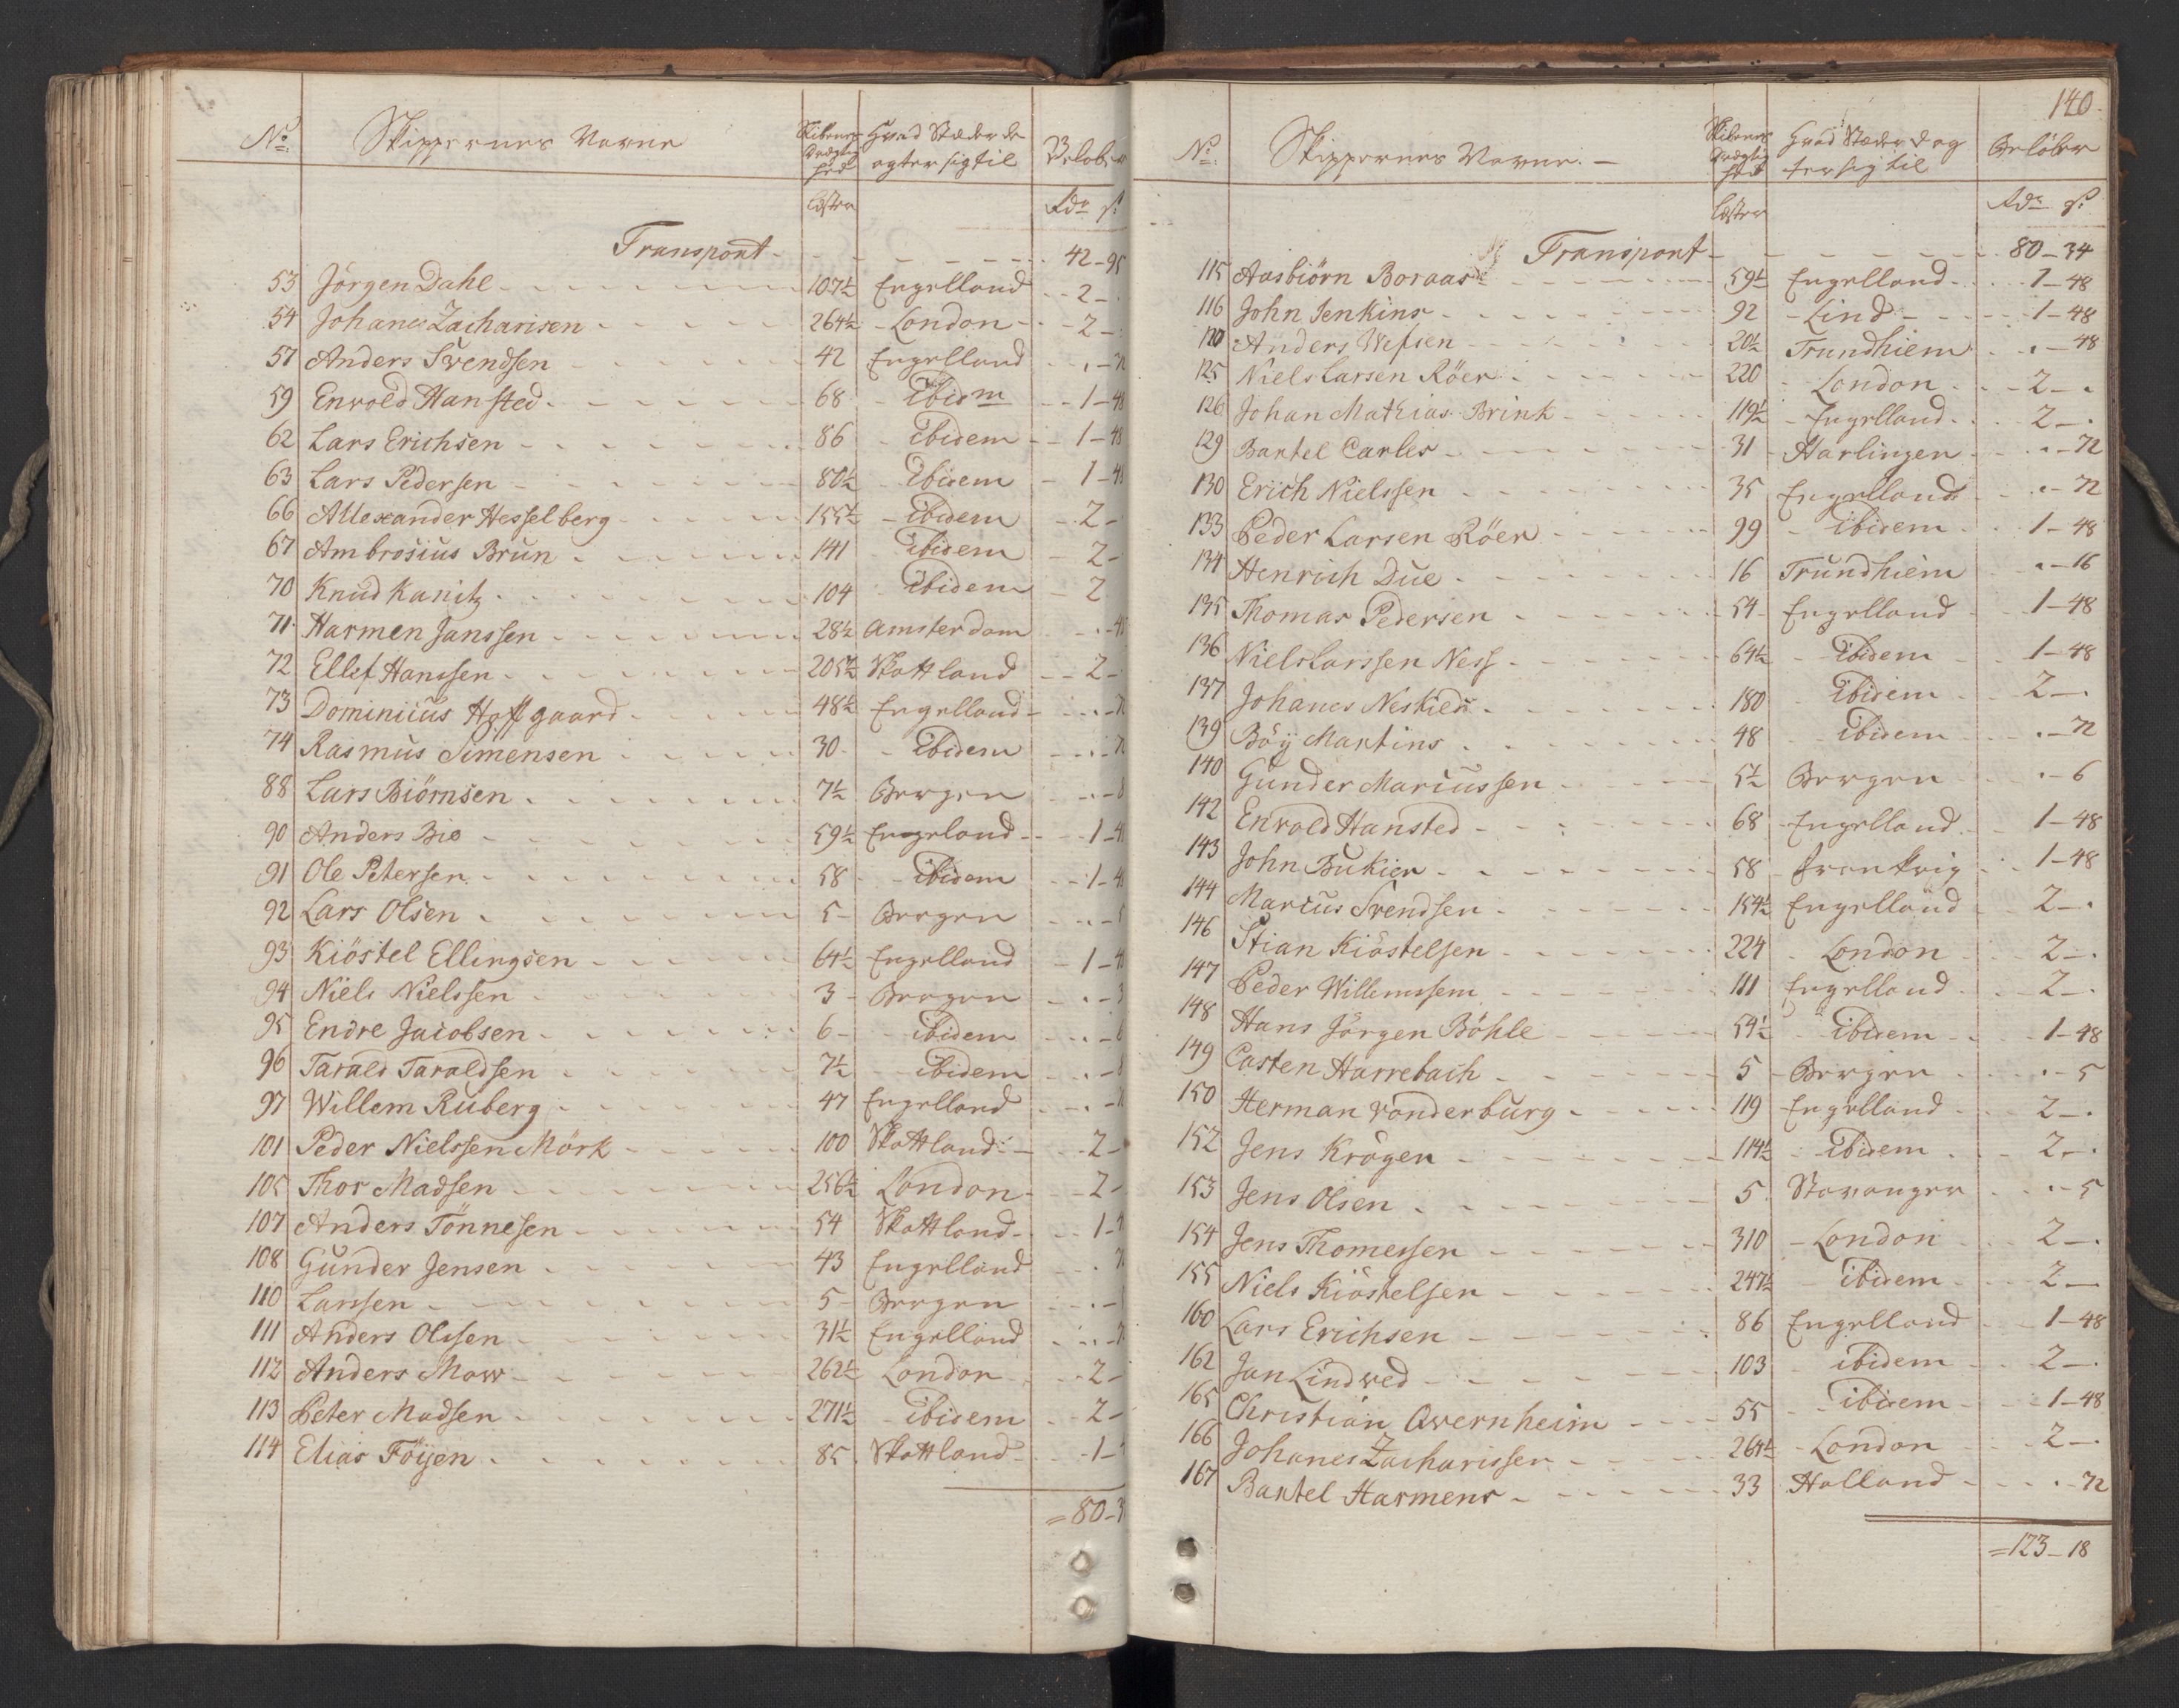 No. Skippernes Navne Skibenes Drægtighed Hvad Stæder de agter sig til Beløber
Læster Rdr s:
Transport 42-95
53 Jörgen Dahl 107½ Engelland 2-
54 Johanes Zacharisen 264½ London 2-
57 Anders Svendsen 42 Engelland
59 Envold Hansted 68 Ibidm 1-48
62 Lars Erichsen 86 Ibidem 1-48
63 Lars Pedersen 80½ Ibidem 1-48
66 Allexander Hesselberg 155½ Ibidem 2-
67 Ambrosius Brun 141 Ibidem 2-
70 Knud Kanitz 104 Ibidem 2
71 Harmen Janssen 28½ Amsterdam
72 Ellef Hanssen 205½ Skottland 2-
73 Dominicus Hofgaard 48½ Engelland
74 Rasmus Simensen 30 Ibidem
88 Lars Biörnsen 7½ Bergen -8
90 Anders Bie 59½ Engeland 1-4
91 Ole Petersen 58 ibidem 1-4
92 Lars Olsen 5 Bergen -5
93 Kiöstel Ellingsen 64½ Engelland 1-4
94 Niels Nielssen 3 Bergen -3
95 Endre Jacobsen 6 ibidem -6
96 Tarald Taraldsen 7½ ibidem -8
97 Willem Ruberg 47 Engelland
101 Peder Nielssen Mörk 100 Skottland 2-
105 Thor Madsen 256½ London 2-
107 Anders Tönnesen 54 Skottland 1-4
108 Gunder Jensen 43 Engelland
110 Larssen 5 Bergen
111 Anders Olssen 31½ Engelland
112 Anders Mow 262½ London 2-
113 Peter Madsen 271½ ibidem 2-
114 Elias Föyen 85 Skottland 1-
=80-3
140.
No. Skippernes Navne Skibenes Drægtighed Hvad Stæder d agter sig til Beløber
Læster Rdr s:
Transport 80-34
115 Aasbiörn Boraas 59½ Engelland 1-48
116 John Jenkins 92 Lind 1-48
120 Anders Wefsen 20½ Trundhiem -48
125 Niels Larsen Röer 220 London 2-
126 Johan Mathias Brink 119½ Engelland 2-
129 Bartel Carles 31 Harlingen -72
130 Erich Nielssen 35 Engelland -72
133 Peder Larsen Röer 99 ibidem 1-48
134 Henrich Due 16 Trundhiem -16
135 Thomas Pedersen 54 Engelland 1-48
136 Niels Larssen Ness 64½ Ibidem 1-48
137 Johanes Neskield 180 Ibidem 2-
139 Böÿ Martins 48 Ibidem -72
140 Gunder Mariussen 5½ Bergen -6
142 Envold Hansted 68 Engelland 1-48
143 John Bukier 58 Frankrig 1-48
144 Marius Svendsen 154½ Engelland 2-
146 Stian Kiöstelsen 224 London 2-
147 Peder Willemssen 111 Engelland 2-
148 Hans Jörgen Böhle 54½ Ibidem 1-48
149 Casten Harrebach 5 Bergen -5
150 Herman vonderburg 119 Engelland 2-
152 Jens Krögen 114½ Ibidem 2-
153 Jens Olsen 5 Stavanger -5
154 Jens Thomessen 310 London 2-
155 Niels Kiöstelsen 247½ ibidem 2-
160 Lars Erichsen 86 Engelland 1-48
162 Jan Lindved 103 ibidem 2-
165 Christian Overnheim 55 ibidem 1-48
166 Johanes Zacharissen 264½ London 2-
167 Bartel Harmens 33 Holland -72
=123-18